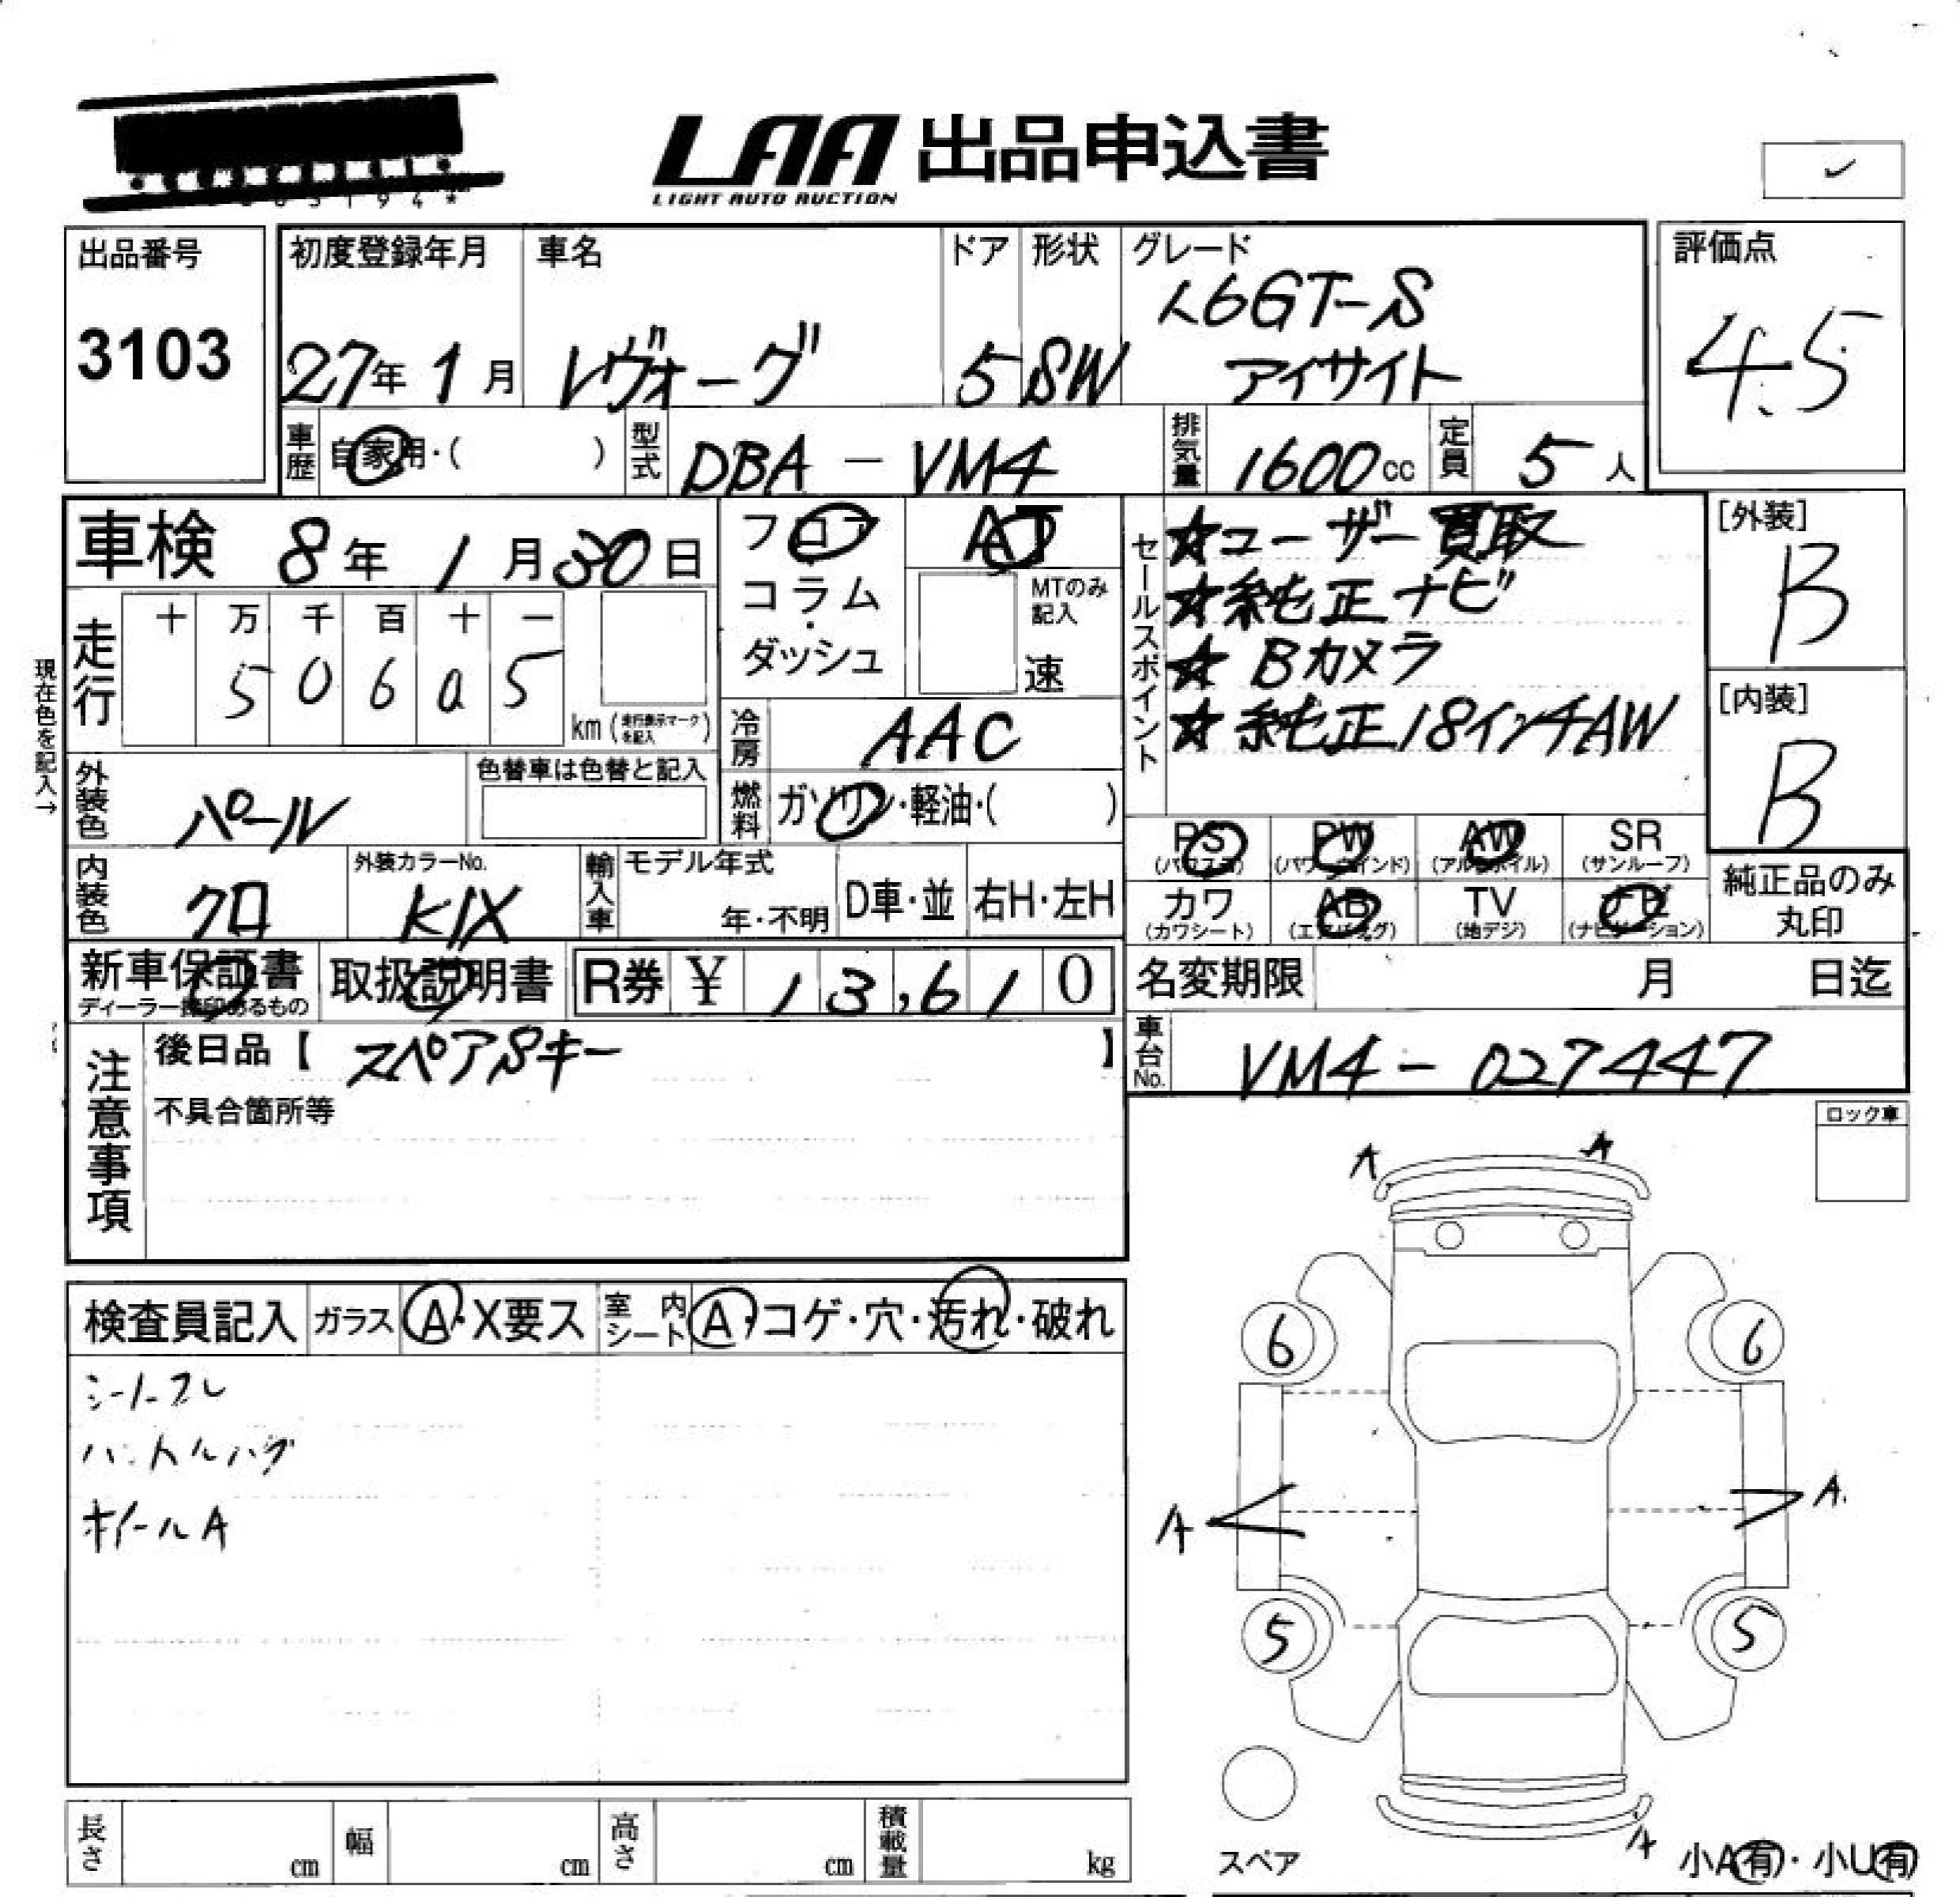 LAA 出品申込書
LIGHT AUTO AUCTION
出品番号
3103
初度登録年月
27年 1月
車名
レヴォーグ
ドア
5
形状
SW
グレード
1.6GT-S
アイサイト
評価点
4.5
車歴
自家用・( )
型式
DBA - VM4
排気量
1600 cc
定員
5 人
車検 8年 1月 30日
フロア
コラム
・
ダッシュ
AT
MTのみ記入
速
セールスポイント
☆ユーザー買取
☆純正ナビ
☆Bカメラ
☆純正18インチAW
[外装]
B
[内装]
B
現在色を記入→
走行
十 万 千 百 十 一
5 0 6 0 5
km (走行表示マークを記入)
冷房
AAC
燃料
ガソリン・軽油・( )
外装色
パール
色替車は色替と記入
内装色
クロ
外装カラーNo.
K1X
輸入車
モデル年式
年・不明
D車・並
右H・左H
PS (パワステ)
PW (パワーウインド)
AW (アルミホイル)
SR (サンルーフ)
カワ (カワシート)
AB (エアバッグ)
TV (地デジ)
ナビ (ナビゲーション)
純正品のみ
丸印
新車保証書
ディーラー捺印あるもの
取扱説明書
R券 ¥ 13,610
名変期限 月 日迄
車台No.
VM4-027447
注意事項
後日品【 スペアSキー 】
不具合箇所等
ロック車
検査員記入
ガラス A・X要ス
室内シート A・コゲ・穴・汚れ・破れ
ホイールA
A A
6 6
A A
5 5
A
スペア
小A有・小U有
長さ cm
幅 cm
高さ cm
積載量 kg